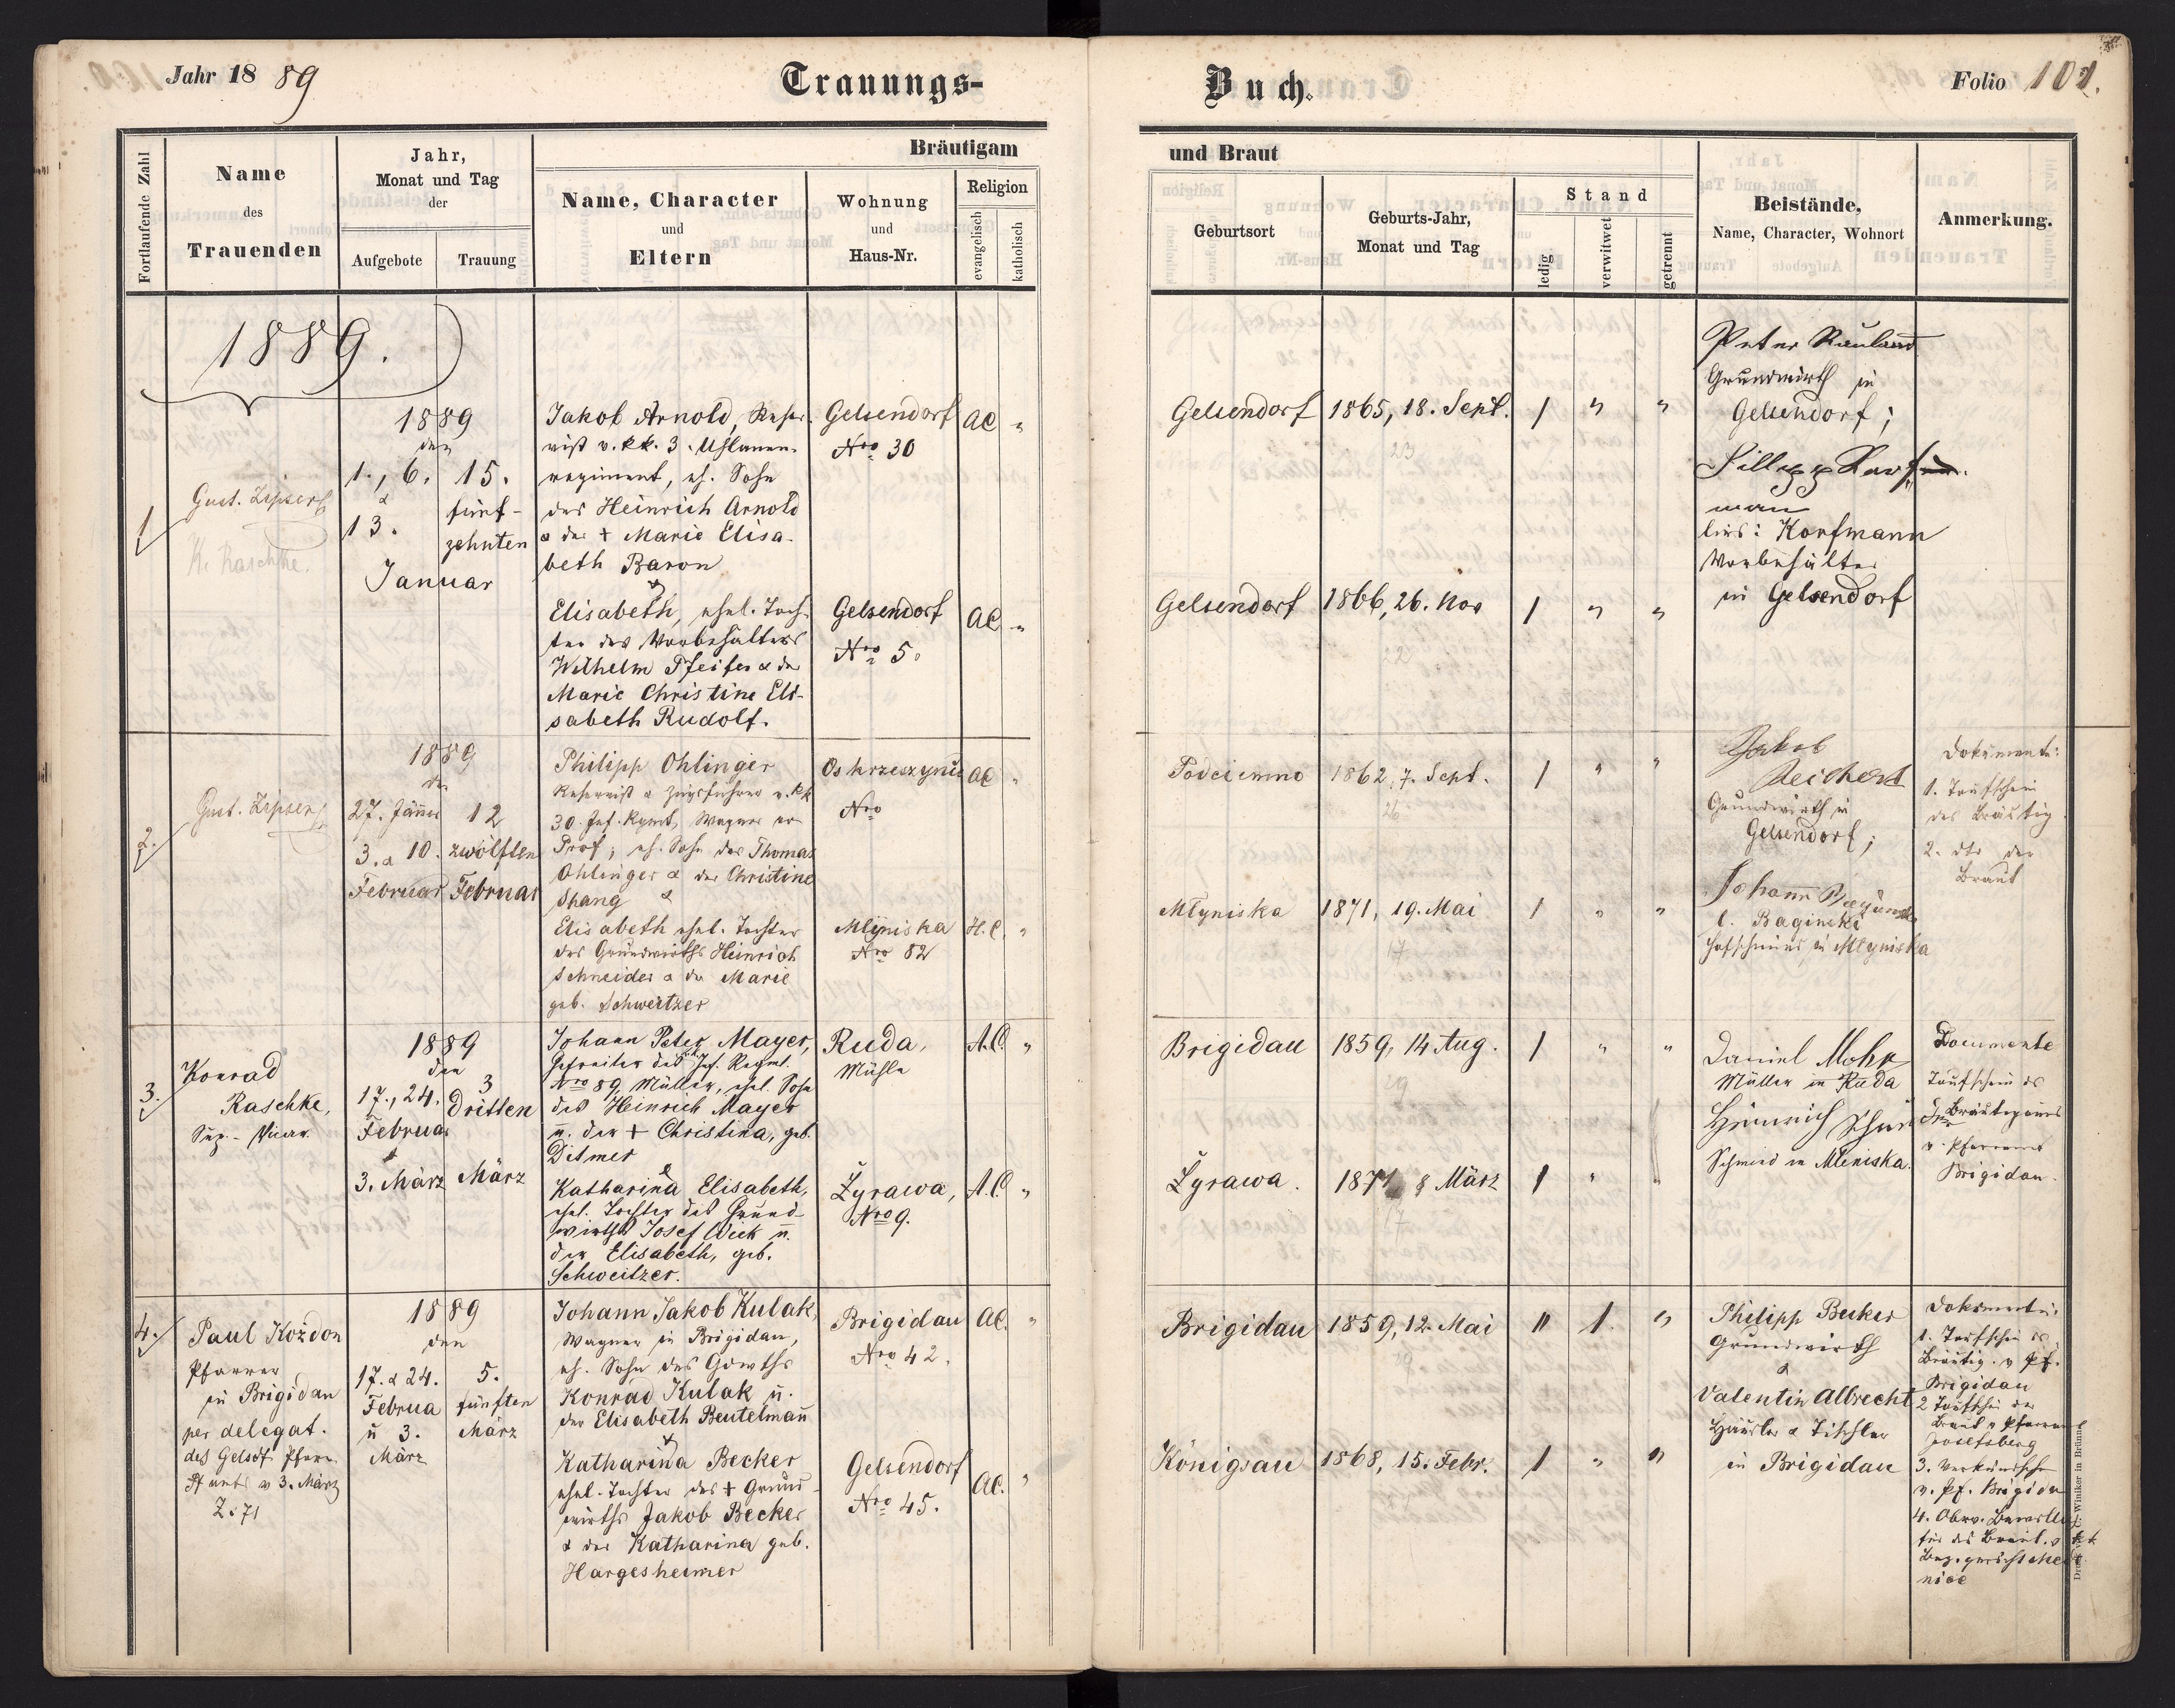 Jahr 1889
Trauungs-
Buch.
Folio 101.
Fortlaufende Zahl
Name
des
Trauenden
Jahr,
Monat und Tag
der
Aufgebote
Trauung
Bräutigam
Name, Character
und
Eltern
Wohnung
und
Haus-Nr.
Religion
evangelisch
katholisch
und Braut
Geburtsort
Geburts-Jahr,
Monat und Tag
Stand
ledig
verwitwet
getrennt
Beistände,
Name, Character, Wohnort
Anmerkung.
1889.
1
Gust. Zipser
K. Raschke.
1889
den
1., 6.
&
13.
15.
fünf-
zehnten
Januar
Jakob Arnold, Reser-
vist v. kk. 3. Uhlanen-
regiment, eh. Sohn
des Heinrich Arnold
& der + Marie Elisa-
beth Baron
&
Gelsendorf
Nro 30
AC "
Gelsendorf
1865, 18. Sept.
23
1 " "
Elisabeth, ehel. Toch-
ter des Vorbehälters
Wilhelm Pfeifer & der
Marie Christine Eli-
sabeth Rudolf.
Gelsendorf
Nro 5.
AC "
Gelsendorf
1866, 26. Nov
22
1 " "
Peter Rauland
Grundwirth in
Gelsendorf;
man
lies: Korfmann
Vorbehälter
in Gelsendorf
2.
Gust. Zipser
1889
den
27. Jänner
3. & 10.
Februar
12
zwölften
Februar
Philipp Ohlinger
Reservist & Zugsführer v. kk
30. Inf. Rgmt, Wagner
Prof; eh. Sohn des Thomas
Ohlinger & der Christine
Spang &
Oskrzeszynie
Nro
AC "
Podciemno
1862, 7. Sept.
26
1 " "
Elisabeth ehel. Tochter
des Grundwirths Heinrich
Schneider & der Marie
geb. Schweitzer
Mlyniska
Nro 82
H.C. "
Młyniska
1871, 19. Mai
17
1 " "
Jakob
Reichert
Grundwirth in
Gelsendorf;
Johann
l. Baginski
Hofschmied in Mlyniska
Dokumente:
1. Taufschein
des Bräutig.
2. dto der
Braut
3.
Konrad
Raschke,
Sup.-Vicar.
1889
den
17., 24.
Februar
&
3. März
3
Dritten
März
Johann Peter Mayer,
Gefreiter des Inf. Regmt.
Nro 89, Müller, ehel. Sohn
des Heinrich Mayer
u. der + Christina, geb.
Ditmer
&
Ruda,
Mühle
A.C. "
Brigidau
1859, 14 Aug.
29
1 " "
Katharina Elisabeth,
ehel. Tochter des Grund-
wirths Josef Wick u.
der Elisabeth, geb.
Schweitzer.
Żyrawa,
Nro 9.
A.C. "
Żyrawa.
1871 8 März
17
1 "
Daniel Mohr
Müller in Ruda
Heinrich
Schmied in Mleniska.
Documente
Taufschein des
Bräutigams
v. Pfarramt
Brigidau.
4.
Paul Kożdon
Pfarrer
in Brigidau
per delegat.
des Gelsdf. Pfarr-
amts v 3. März
Z: 71
1889
den
17. & 24.
Februa
u 3.
März
5.
fünften
März
Johann Jakob Kulak,
Wagner in Brigidau,
eh. Sohn des Gdwths
Konrad Kulak u.
der Elisabeth Beutelmañ
&
Brigidau
Nro 42.
AC. "
Brigidau
1859, 12. Mai
29
" 1. "
Katharina Becker
ehel. Tochter des + Grund-
wirths Jakob Becker
& der Katharina geb.
Hargesheimer
Gelsendorf
Nro 45.
AC. "
Königsau
1868, 15. Febr.
1 " "
Philipp Becker
Grundwirth
&
Valentin Albrecht
Häusler & Tischler
in Brigidau
Dokumente:
1. Taufschein des
Bräutig. v Pf.
Brigidau
2 Taufschein der
Braut v Pfarramt
Josefsberg
3. Verkündschein
v. Pf. Brigidau
4. Obrv. Bewillig
für die Braut v k.k.
Bez.gericht Me-
nice
Winiker in Brünn.